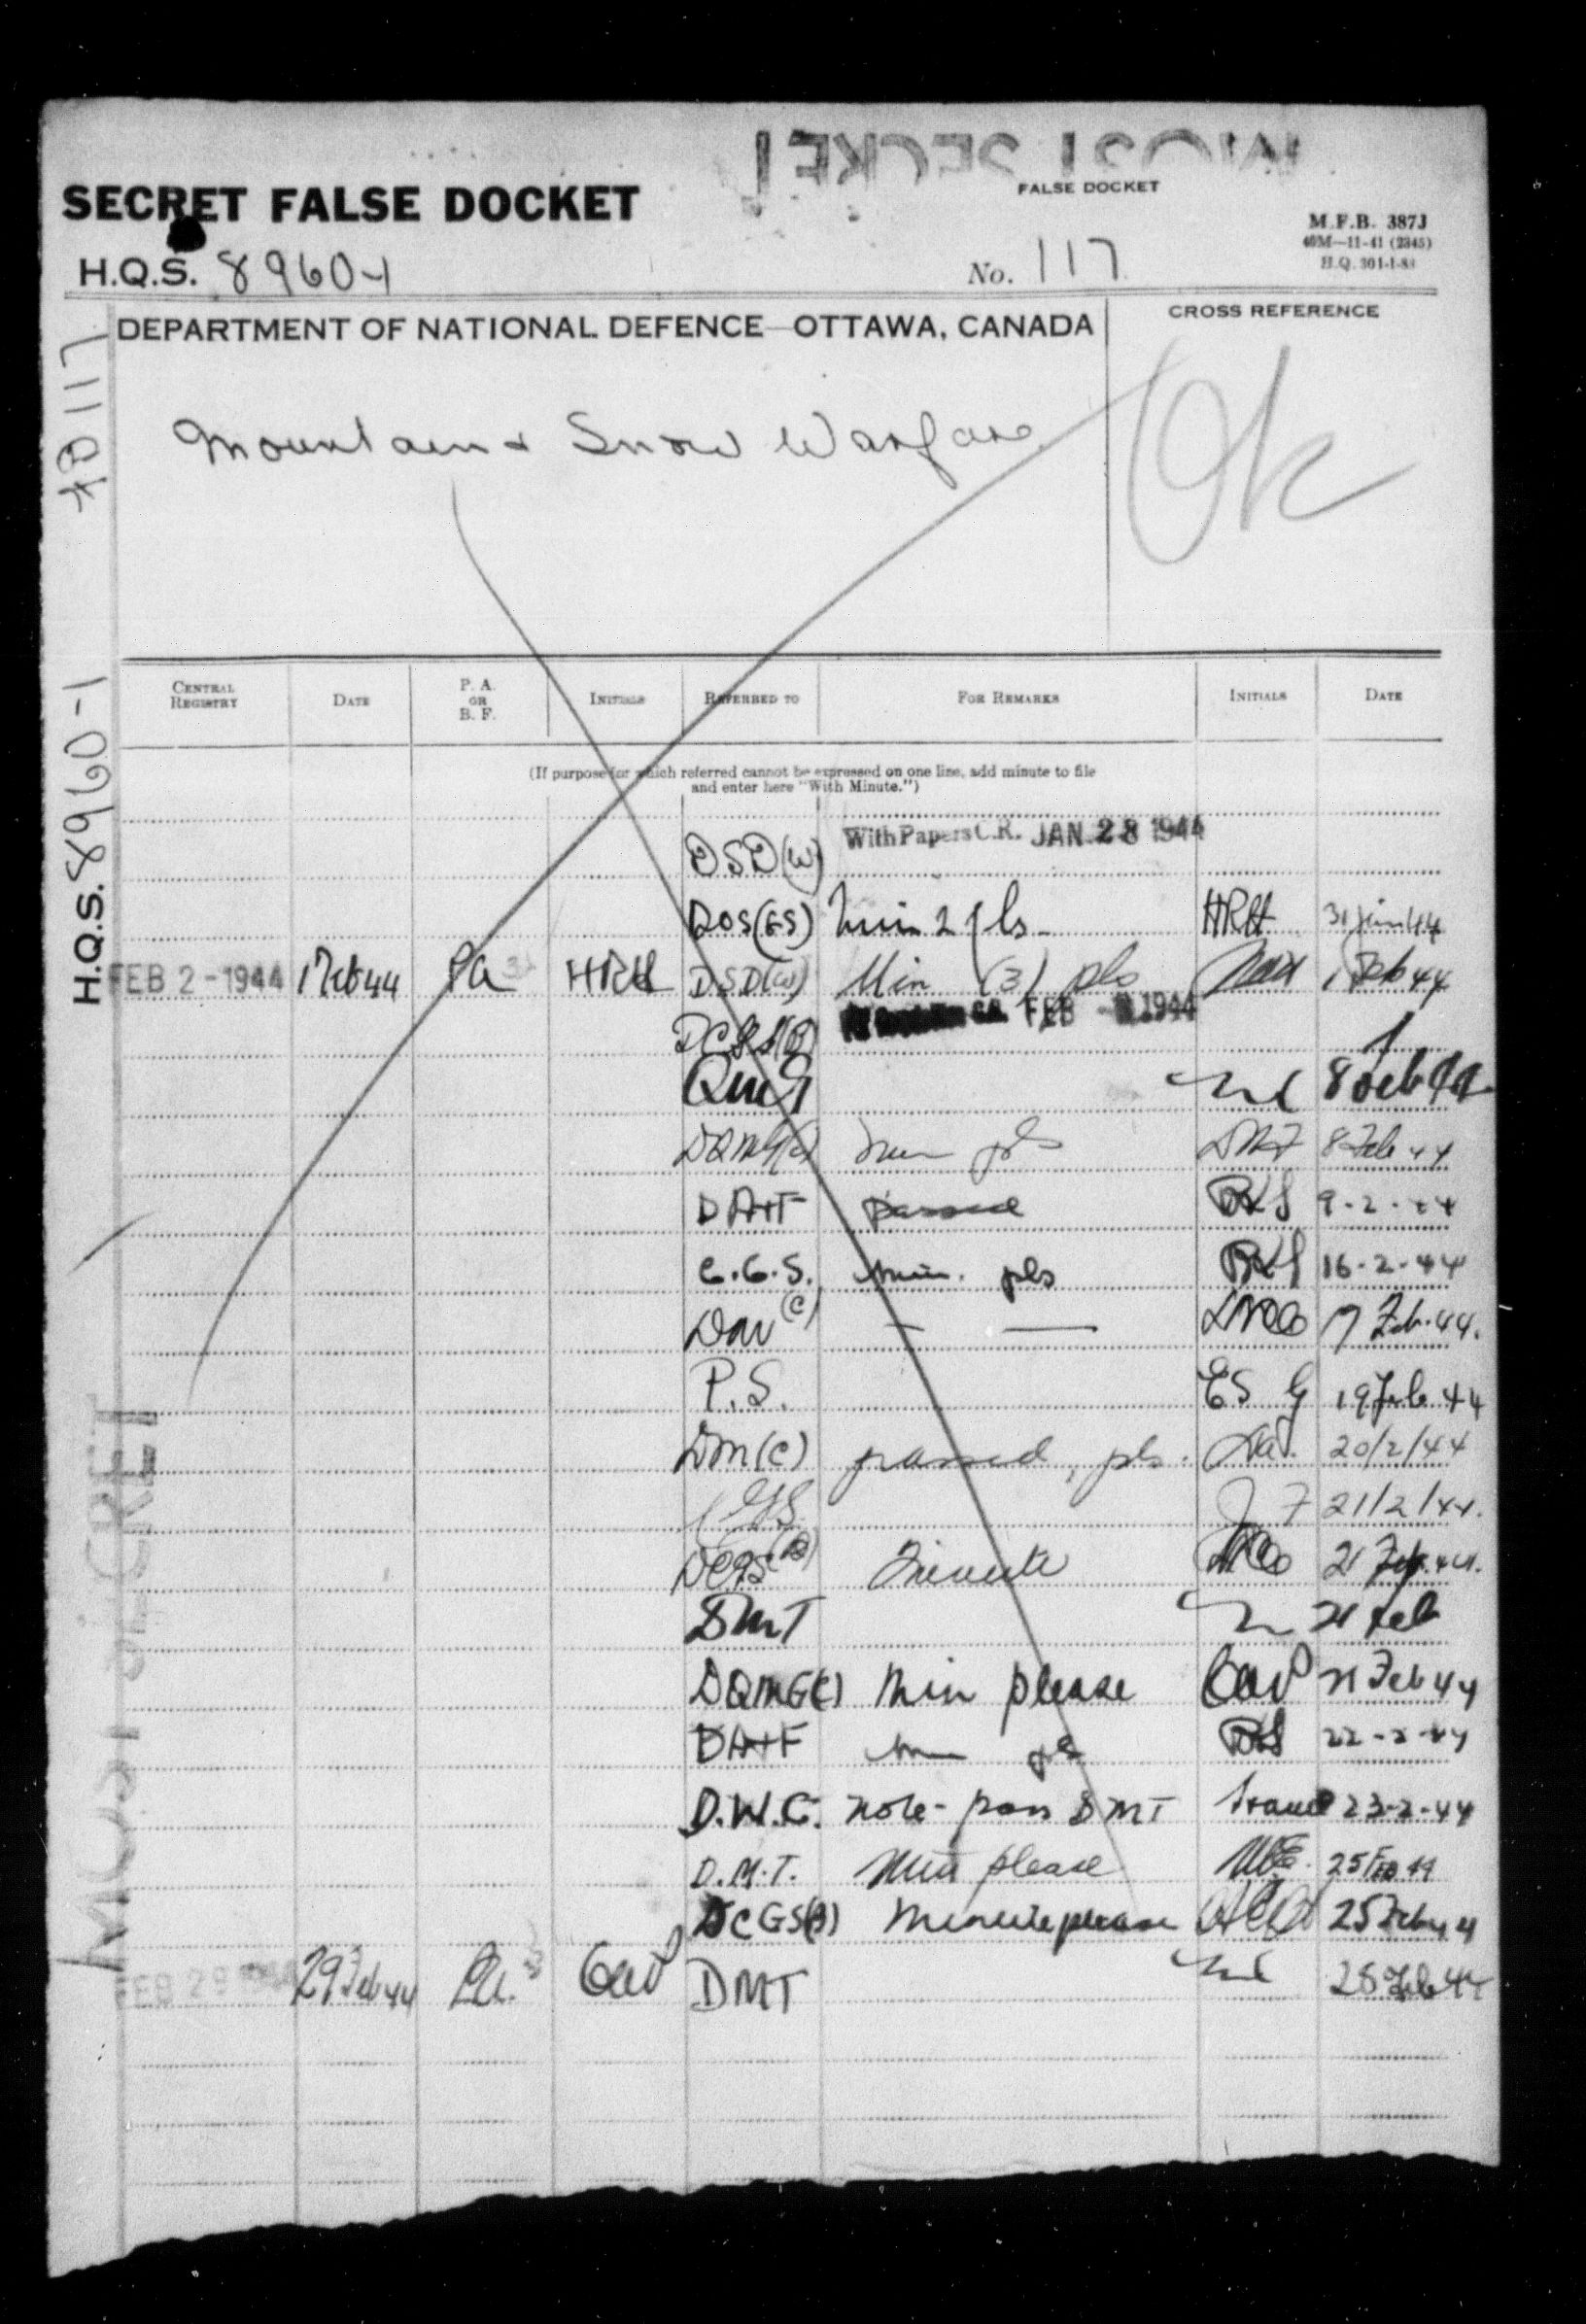 MOST SECRET
SECRET FALSE DOCKET
FALSE DOCKET
M.F.B. 387J
40M—11-41 (2345)
H.Q. 301-1-84
H.Q.S. 8960-1
No. 117
DEPARTMENT OF NATIONAL DEFENCE—OTTAWA, CANADA
CROSS REFERENCE
Mountain & Snow Warfare
Ok
FD 117
H.Q.S. 8960-1
MOST SECRET
CENTRAL REGISTRY DATE P. A. OR B. F. INITIALS REFERRED TO FOR REMARKS INITIALS DATE
(If purpose for which referred cannot be expressed on one line, add minute to file
and enter here "With Minute.")
DSD(W) With Papers C.R. JAN 28 1944
Min 2 pls HRH 31 Jan 44
FEB 2 - 1944 1 Feb 44 Pa HRH DSD(W) Min (3) pls 1 Feb 44
FEB 1944
QMG 8 Feb 44
DQMG 8 Feb 44
DA+F passed 9-2-44
C.G.S. Min. pls 16-2-44
DM(C) 17 Feb. 44.
P.S. ESG 19 Feb 44
DM(C) passed, pls. 20/2/44
CGS 21/2/44.
DCGS(B) Minute 21 Feb. 44.
DMT 21 Feb
DQMG(C) Min please 21 Feb 44
DA+F Min pls 22-2-44
D.W.C. note - pass DMT 23-2-44
D.M.T. Min please 25 Feb 44
DCGS(B) Minute please 25 Feb 44
FEB 29 1944 29 Feb 44 Pa. DMT 28 Feb 44